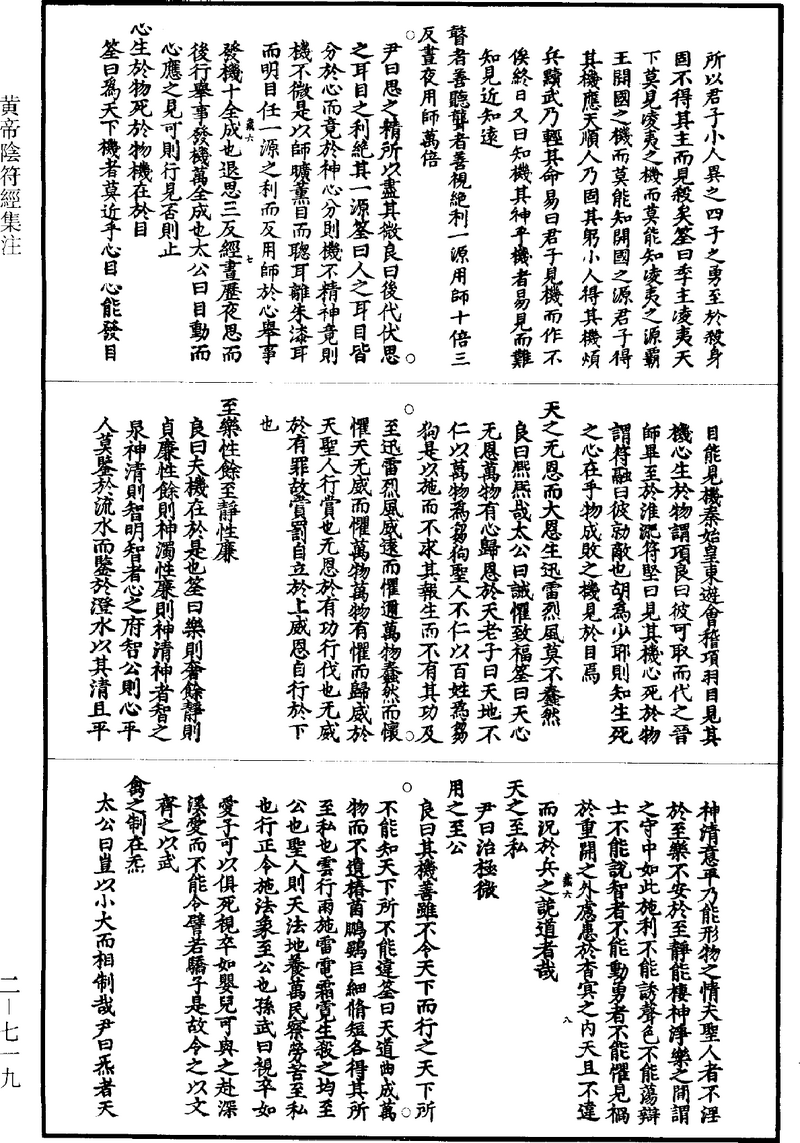 黄帝陰符經集注
二—七一九
所以君子小人異之四子之勇至於殺身
固不得其主而見殺矣筌曰季主凌夷天
下莫見凌夷之機而莫能知凌夷之源霸
王開國之機而莫能知開國之源君子得
其機應天順人乃固其躬小人得其機煩
兵黷武乃輕其命易曰君子見機而作不
俟終日又曰知機其神乎機者易見而難
知見近知遠
瞽者善聽聾者善視絶利一源用師十倍三
反晝夜用師萬倍
尹曰思之精所以盡其微良曰後代伏思
之耳目之利絶其一源筌曰人之耳目皆
分於心而竟於神心分則機不精神竟則
機不微是以師曠薫目而聰耳離朱漆耳
而明目任一源之利而反用師於心舉事
藏六
七
發機十全成也退思三反經晝歷夜思而
後行舉事發機萬全成也太公曰目動而
心應之見可則行見否則止
心生於物死於物機在於目
筌曰爲天下機者莫近乎心目心能發目
目能見機秦始皇東遊會稽項羽目見其
機心生於物謂項良曰彼可取而代之晉
師畢至於淮淝符堅曰見其機心死於物
謂符融曰彼勍敵也胡爲少耶則知生死
之心在乎物成敗之機見於目焉
天之无恩而大恩生迅雷烈風莫不蠢然
良曰熈熈哉太公曰誡懼致福筌曰天心
无恩萬物有心歸恩於天老子曰天地不
仁以萬物爲芻狗聖人不仁以百姓爲芻
狗是以施而不求其報生而不有其功及
至迅雷烈風威遠而懼邇萬物蠢然而懷
懼天无威而懼萬物萬物有懼而歸威於
天聖人行賞也无恩於有功行伐也无威
於有罪故賞罰自立於上威恩自行於下
也
至樂性餘至靜性廉
良曰夫機在於是也筌曰樂則奢餘靜則
貞廉性餘則神濁性廉則神清神者智之
泉神清則智明智者心之府智公則心平
人莫鑒於流水而鑒於澄水以其清且平
神清意平乃能形物之情夫聖人者不淫
於至樂不安於至靜能棲神淨樂之間謂
之守中如此施利不能誘聲色不能蕩辯
士不能說智者不能動勇者不能懼見禍
於重開之外慮患於杳冥之内天且不違
藏六
八
而況於兵之詭道者哉
天之至私
尹曰治極微
用之至公
良曰其機善雖不令天下而行之天下所
不能知天下所不能違筌曰天道曲成萬
物而不遺椿菌鵬鷃巨細脩短各得其所
至私也雲行雨施雷電霜霓生殺之均至
公也聖人則天法地養萬民察勞苦至私
也行正令施法象至公也孫武曰視卒如
愛子可以俱死視卒如嬰兒可與之赴深
溪愛而不能令譬若驕子是故令之以文
齊之以武
禽之制在炁
太公曰豈以小大而相制哉尹曰炁者天